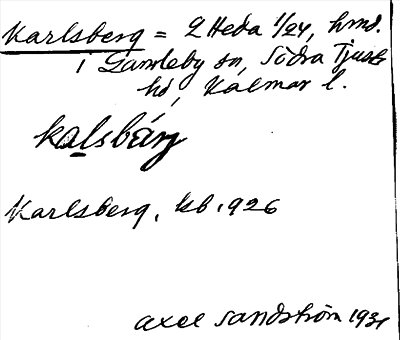 Karlsberg = 2 Heda 1/24, hmd.
i Gamleby sn, Södra Tjust
hd, Kalmar l.
kalsbärj
Karlsberg, kb. 1926
Axel Sandström 1931